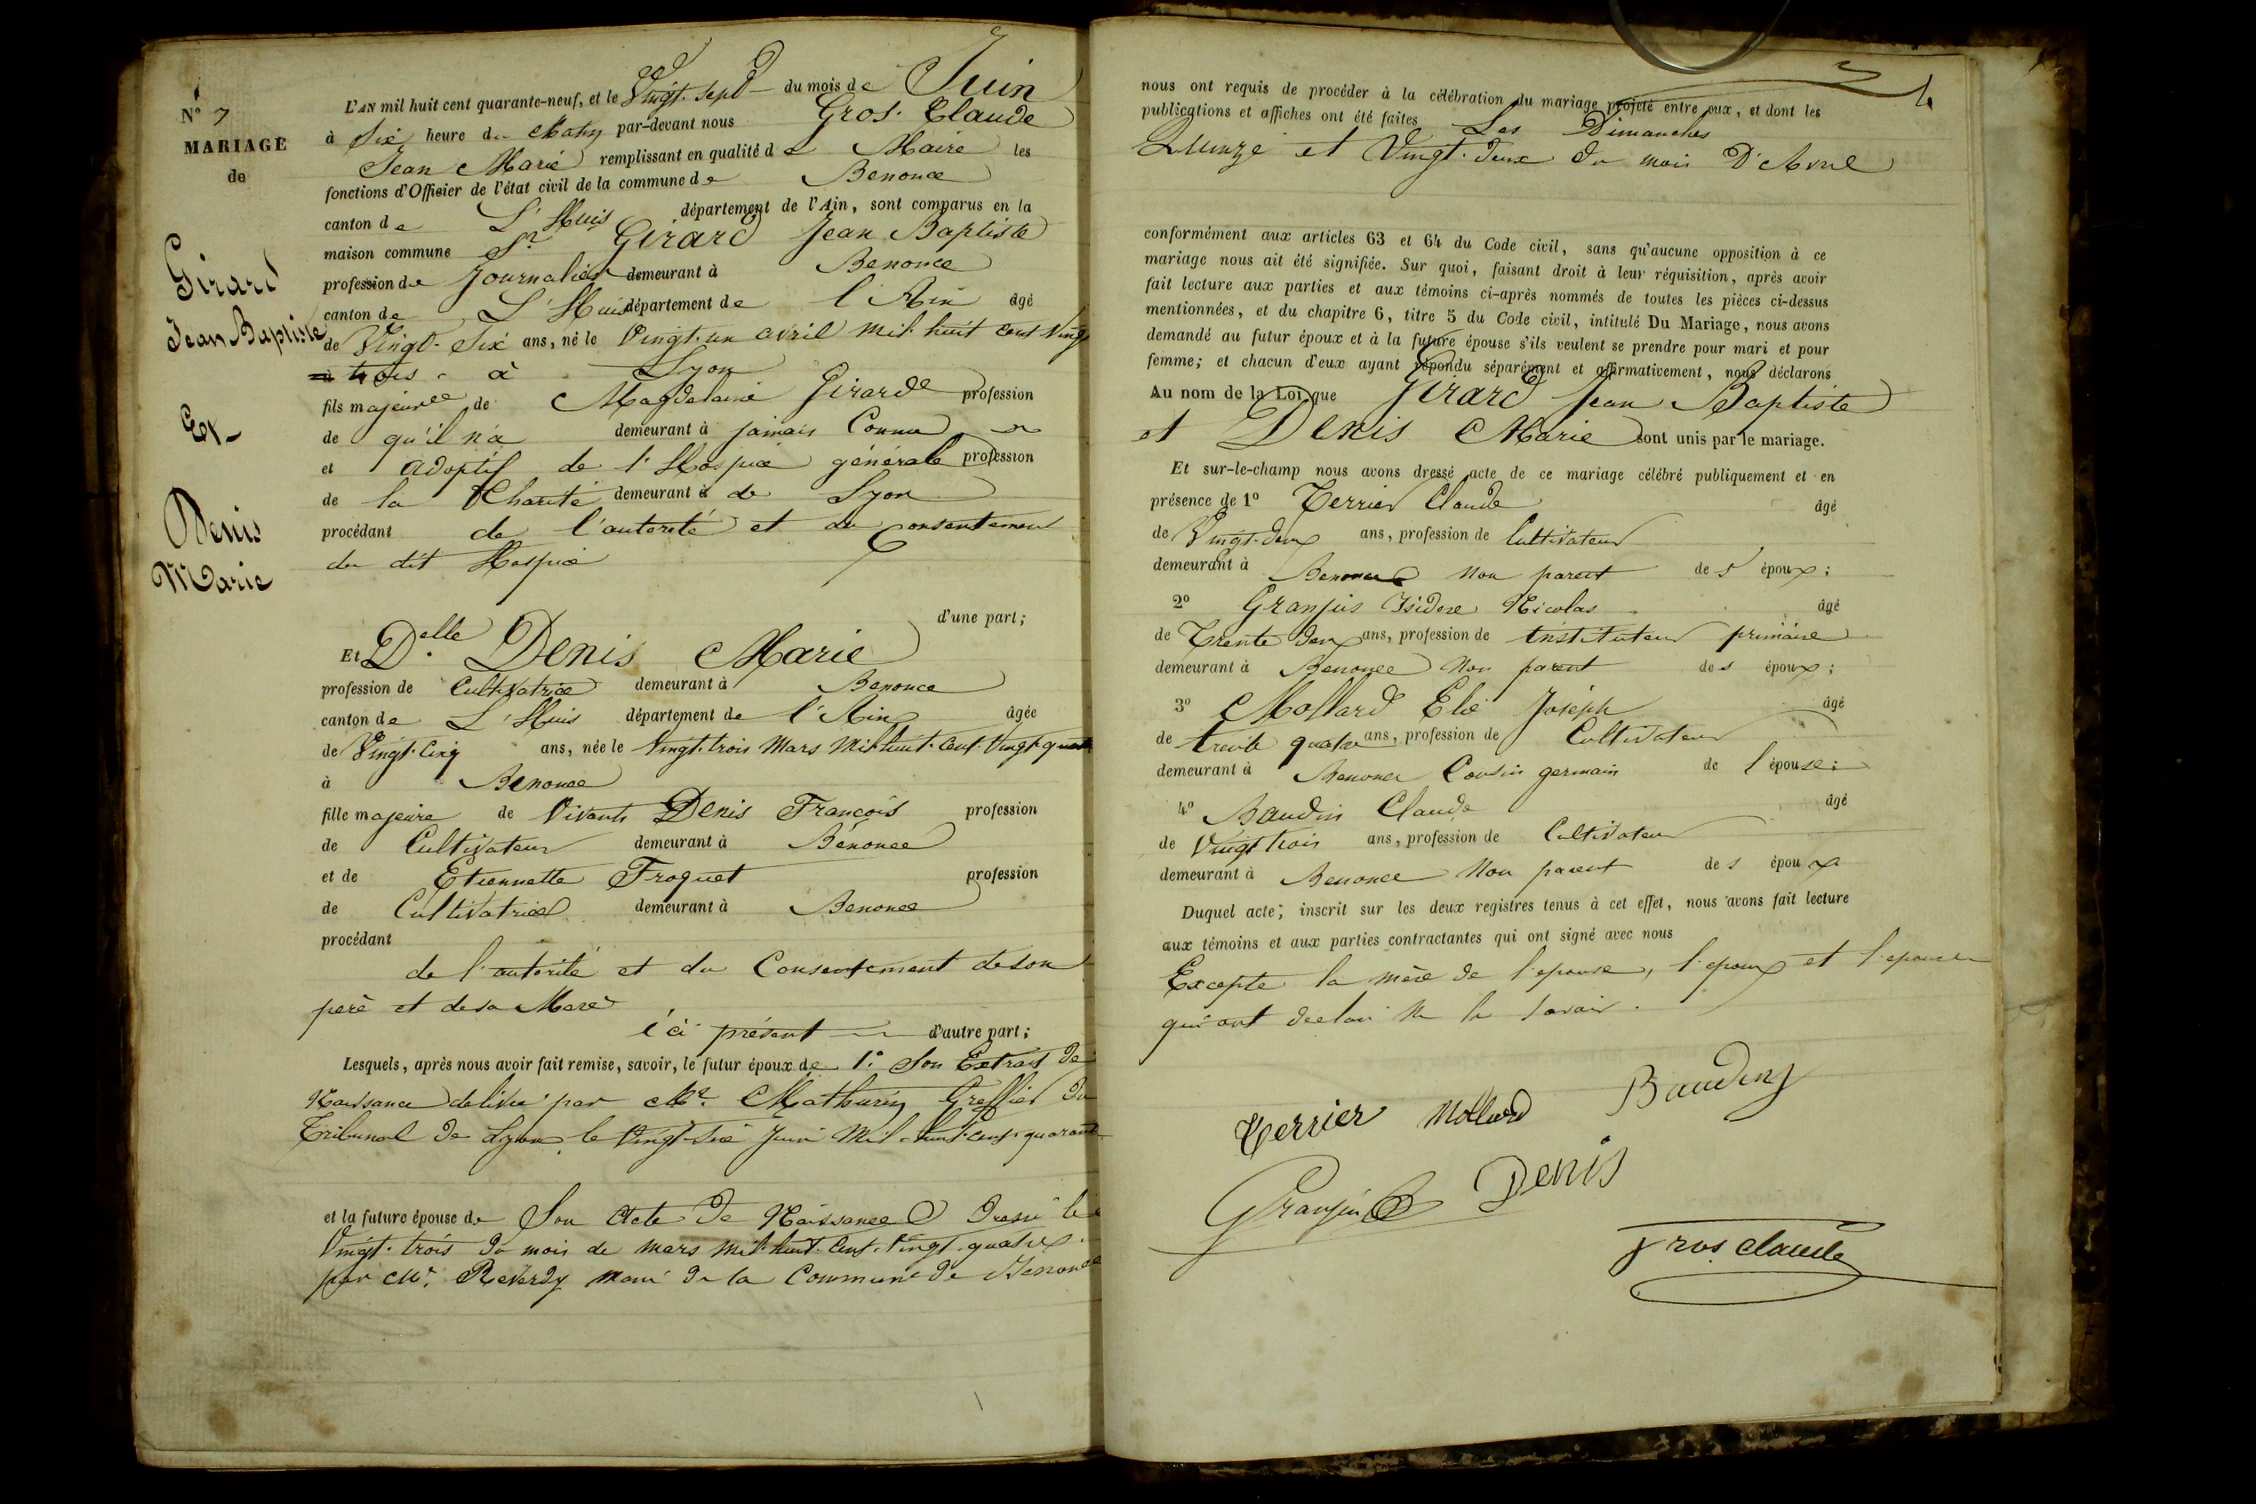 N° 7
MARIAGE
de
Girard
Jean Baptiste
Et
Denis
Marie
L'AN mil huit cent quarante-neuf, et le Vingt-Sept du mois de Juin
à Six heure du Matin par-devant nous Gros-Claude
Jean Marie remplissant en qualité de Maire les
fonctions d'Officier de l'état civil de la commune de Benonce
canton de L'Huis département de l'Ain, sont comparus en la
maison commune Sr Girard Jean Baptiste
profession de Journalier demeurant à Benonce
canton de L'Huis département de l'Ain âgé
de Vingt-Six ans, né le Vingt-un avril mil huit cent Vingt
trois à Lyon
fils majeur de Magdelaine Girarde profession
de qu'il n'a demeurant à jamais Connu
et adoptif de l'Hospice générale profession
de la Charité demeurant à de Lyon
procédant de l'autorité et du Consentement
du dit Hospice
d'une part;
Et Delle Denis Marie
profession de Cultivatrice demeurant à Benonce
canton de L'Huis département de l'Ain âgée
de Vingt-Cinq ans, née le Vingt-trois Mars Mil-huit-Cent-Vingt-quatre
à Benonce
fille majeure de Vivants Denis François profession
de Cultivateur demeurant à Bénonce
et de Etiennette Froquet profession
de Cultivatrice demeurant à Benonce
procédant
de l'autorité et du Consentement de son
père et de sa Mère
ici présent d'autre part;
Lesquels, après nous avoir fait remise, savoir, le futur époux de 1° Son Extrait de
Naissance délivré par Mr Mathurin Greffier du
Tribunal de Lyon le Vingt-Six Juin Mil-huit-Cent-quarante
et la future épouse de Son Acte de Naissance Dressé le
Vingt-trois du mois de mars mil-huit-Cent-Vingt-quatre
par Mr. Reverdy maire de la Commune de Benonce
nous ont requis de procéder à la célébration du mariage projeté entre eux, et dont les
publications et affiches ont été faites Les Dimanches
Quinze et Vingt-deux du mois D'Avril
conformément aux articles 63 et 64 du Code civil, sans qu'aucune opposition à ce
mariage nous ait été signifiée. Sur quoi, faisant droit à leur réquisition, après avoir
fait lecture aux parties et aux témoins ci-après nommés de toutes les pièces ci-dessus
mentionnées, et du chapitre 6, titre 5 du Code civil, intitulé Du Mariage, nous avons
demandé au futur époux et à la future épouse s'ils veulent se prendre pour mari et pour
femme; et chacun d'eux ayant répondu séparément et affirmativement, nous déclarons
Au nom de la Loi que Girard Jean Baptiste
et Denis Marie sont unis par le mariage.
Et sur-le-champ nous avons dressé acte de ce mariage célébré publiquement et en
présence de 1° Terrier Claude âgé
de Vingt-deux ans, profession de Cultivateur
demeurant à Benonce Non parent des époux;
2° Granjus Isidore Nicolas âgé
de Trente deux ans, profession de Instituteur primaire
demeurant à Benonce Non parent des époux;
3° Mollard Elie Joseph âgé
de trente quatre ans, profession de Cultivateur
demeurant à Benonce Cousin germain de l'épouse;
4° Baudin Claude âgé
de Vingt trois ans, profession de Cultivateur
demeurant à Benonce Non parent des époux
Duquel acte, inscrit sur les deux registres tenus à cet effet, nous avons fait lecture
aux témoins et aux parties contractantes qui ont signé avec nous
Excepte la mère de l'epouse, l'epoux et l'epouse
qui ont declaré ne le savoir.
Terrier Mollard Baudin
Granjus Denis
Gros Claude